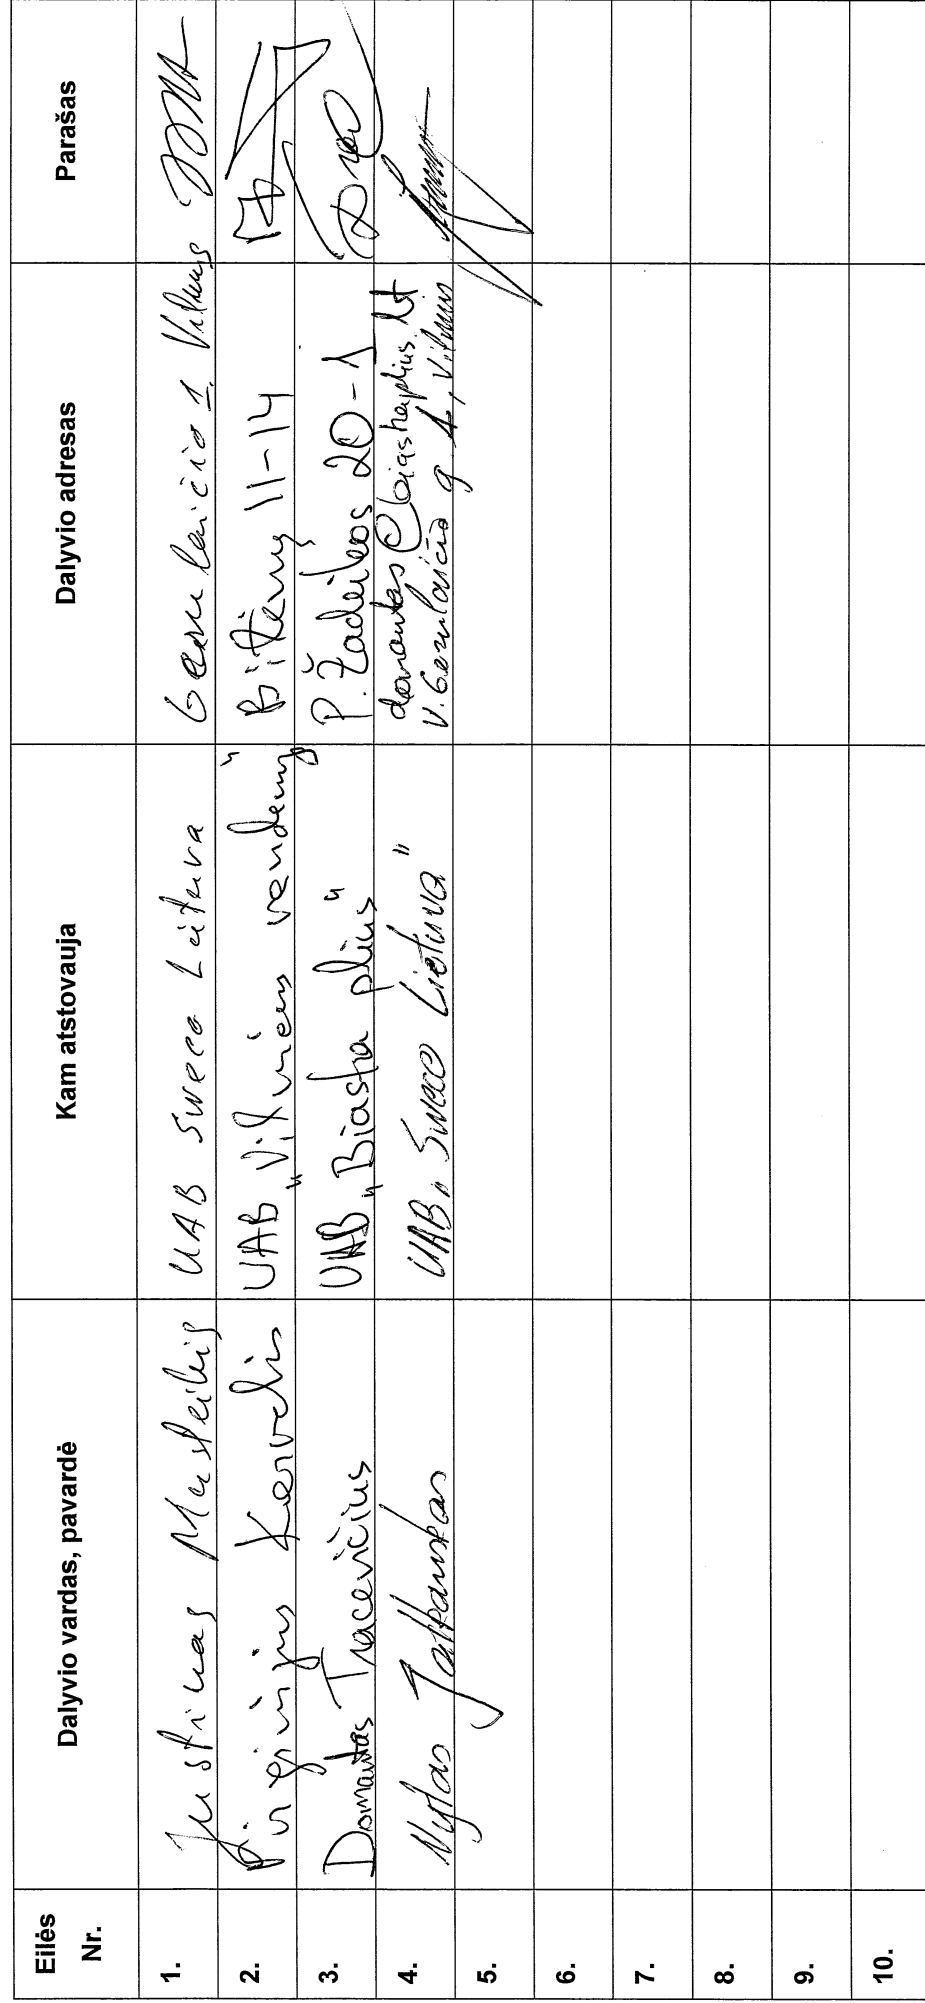 Eilės Nr. Dalyvio vardas, pavardė Kam atstovauja Dalyvio adresas Parašas
1. Justinas Musteikis UAB Sweco Lietuva Gerulaičio 1, Vilnius
2. Virginijus Kervelis UAB „Vilniaus vandenys" Bitėnų 11-14
3. Domantas Tracevičius UAB „Biastra plius" P. Žadeikos 20-1
domantas@biastraplius.lt
4. Vytas UAB „Sweco Lietuva" V. Gerulaičio g. 1, Vilnius
5.
6.
7.
8.
9.
10.